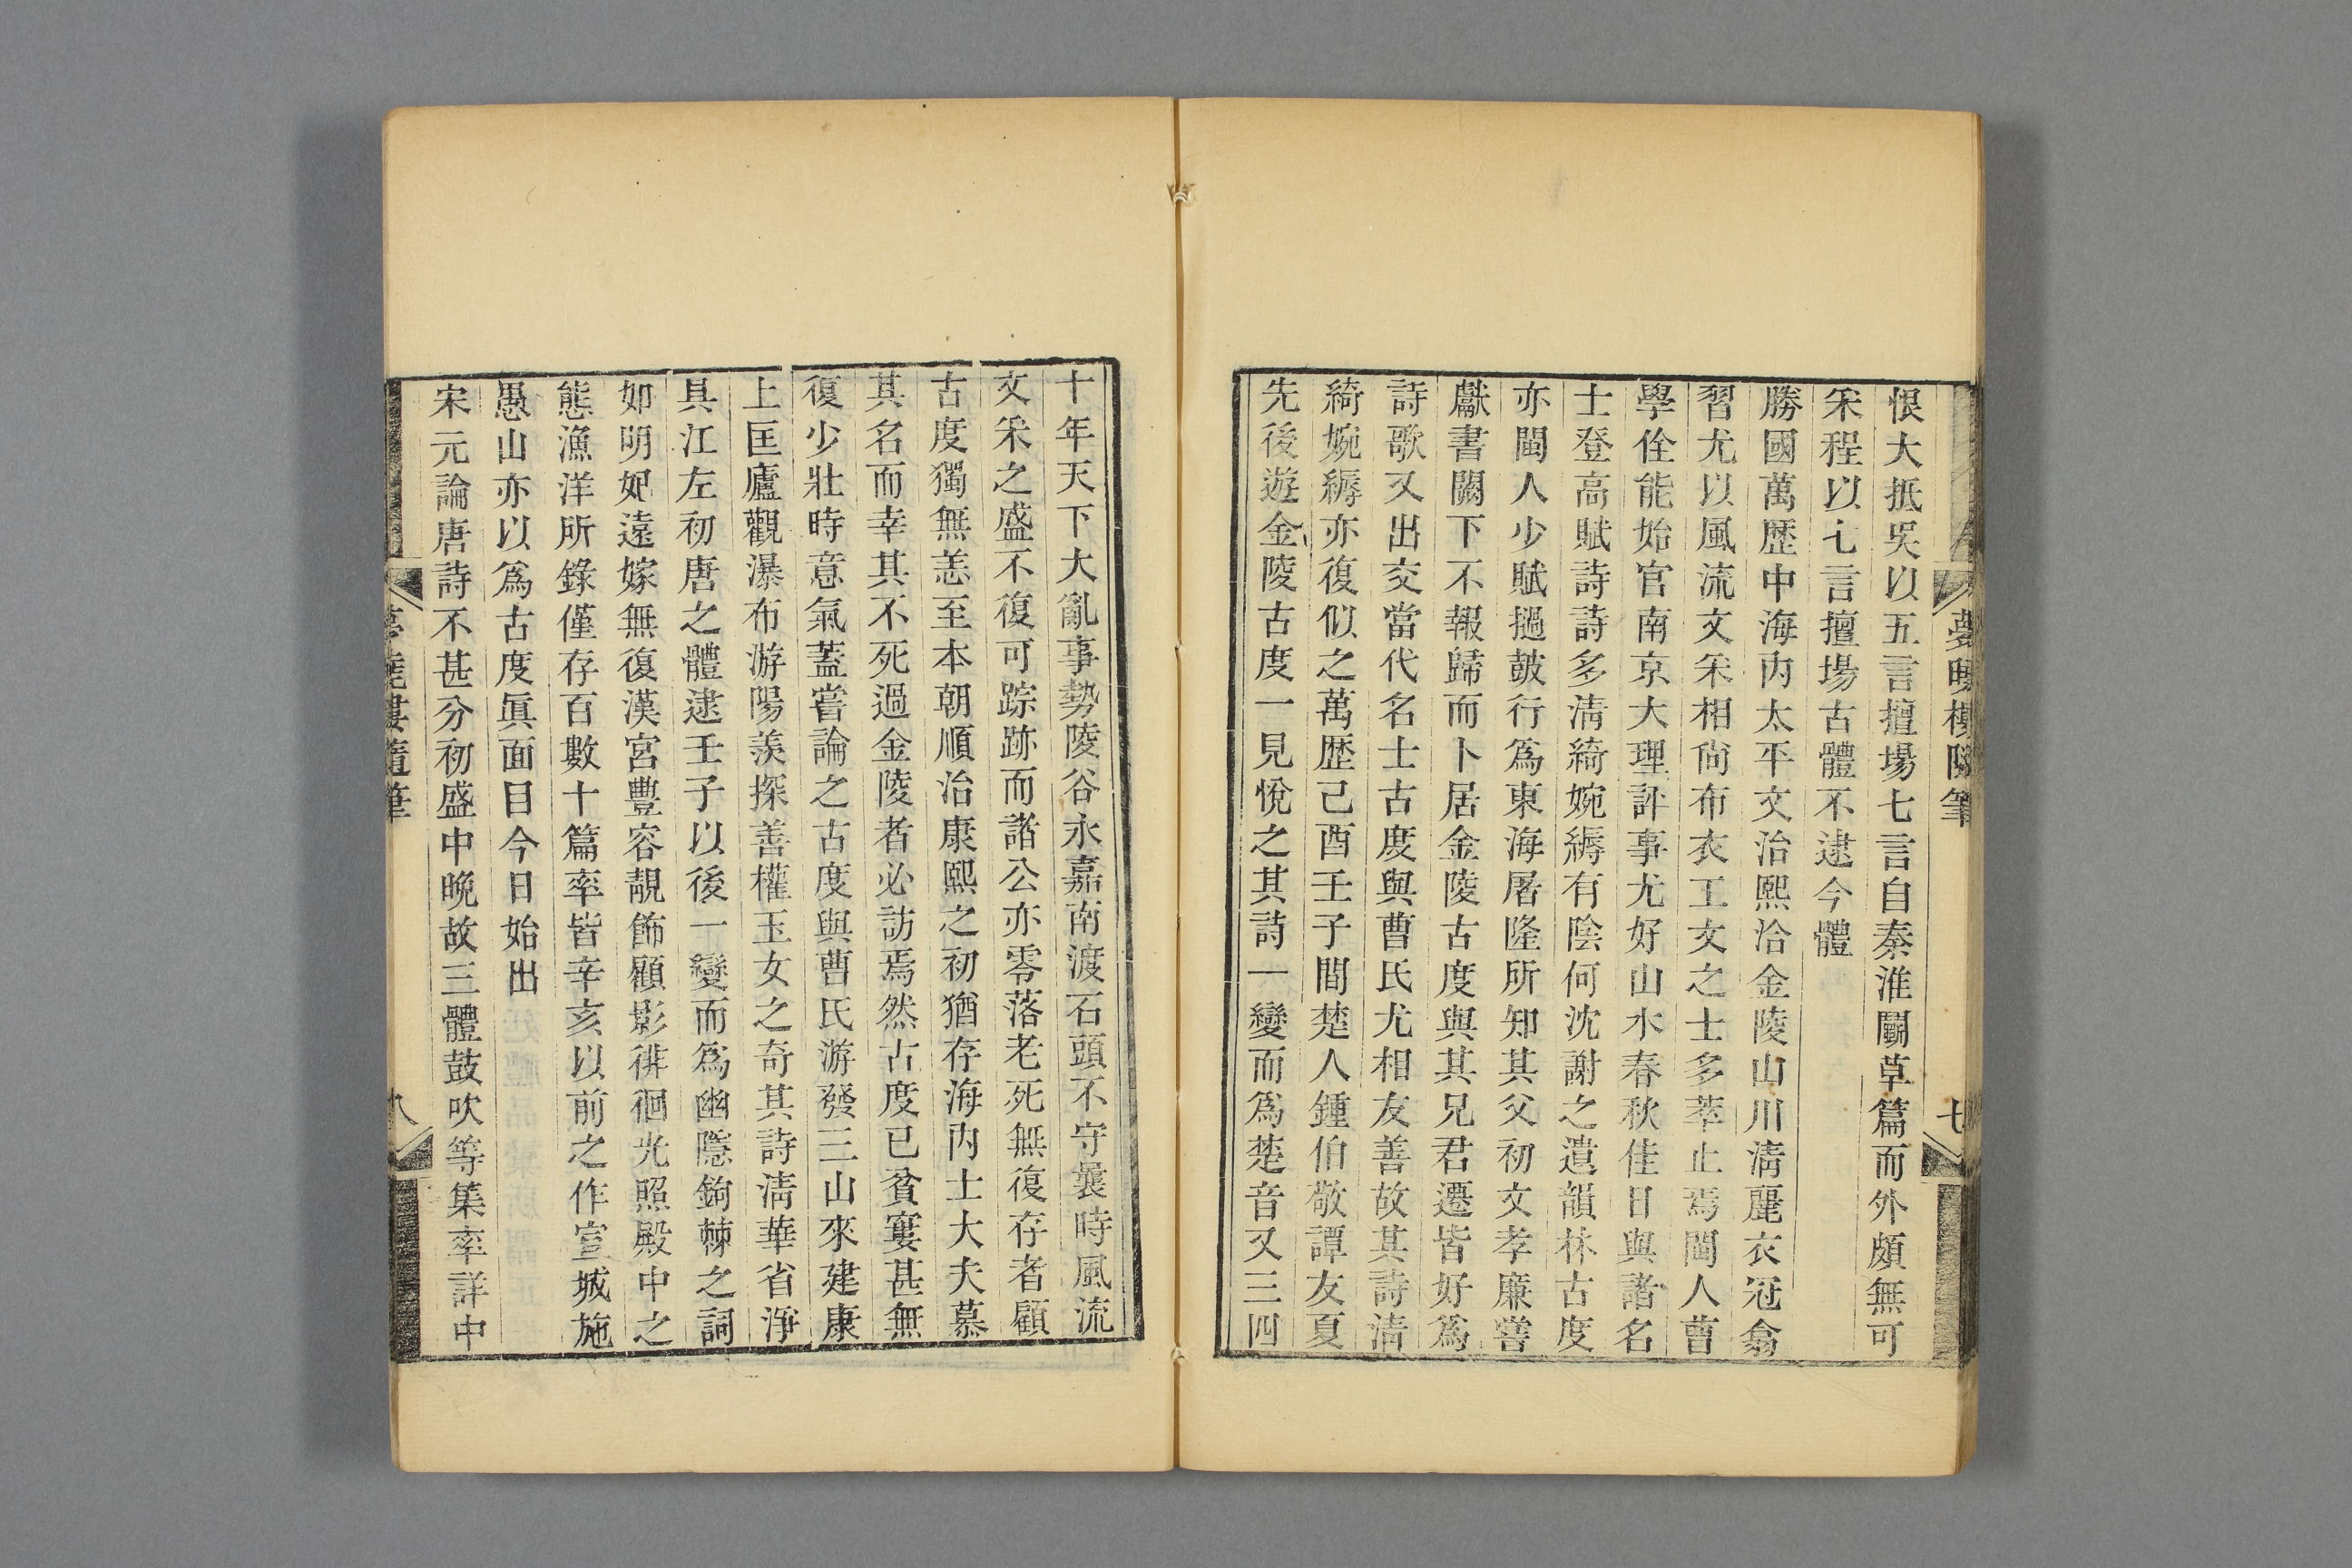 夢曉樓隨筆
七
恨大抵吳以五言擅場七言自秦淮鬭草篇而外頗無可
采程以七言擅場古體不逮今體
勝國萬歷中海內太平文治熙洽金陵山川淸麗衣冠翕
習尤以風流文采相尙布衣工文之士多萃止焉閩人曹
學佺能始官南京大理評事尤好山水春秋佳日與諸名
士登高賦詩詩多淸綺婉縟有陰何沈謝之遺韻林古度
亦閩人少賦撾鼓行爲東海屠隆所知其父初文孝廉嘗
獻書闕下不報歸而卜居金陵古度與其兄君遷皆好爲
詩歌又出交當代名士古度與曹氏尤相友善故其詩淸
綺婉縟亦復似之萬歷己酉壬子間楚人鍾伯敬譚友夏
先後遊金陵古度一見悅之其詩一變而爲楚音又三四
十年天下大亂事勢陵谷永嘉南渡石頭不守曩時風流
文采之盛不復可踪跡而諸公亦零落老死無復存者顧
古度獨無恙至本朝順治康熙之初猶存海內士大夫慕
其名而幸其不死過金陵者必訪焉然古度已貧窶甚無
復少壯時意氣蓋嘗論之古度與曹氏游發三山來建康
上匡廬觀瀑布游陽羨探善權玉女之奇其詩淸華省淨
具江左初唐之體逮壬子以後一變而爲幽隱鉤棘之詞
如明妃遠嫁無復漢宮豐容靚飾顧影徘徊光照殿中之
態漁洋所錄僅存百數十篇率皆辛亥以前之作宣城施
愚山亦以爲古度眞面目今日始出
宋元論唐詩不甚分初盛中晚故三體鼓吹等集率詳中
夢曉樓隨筆
八